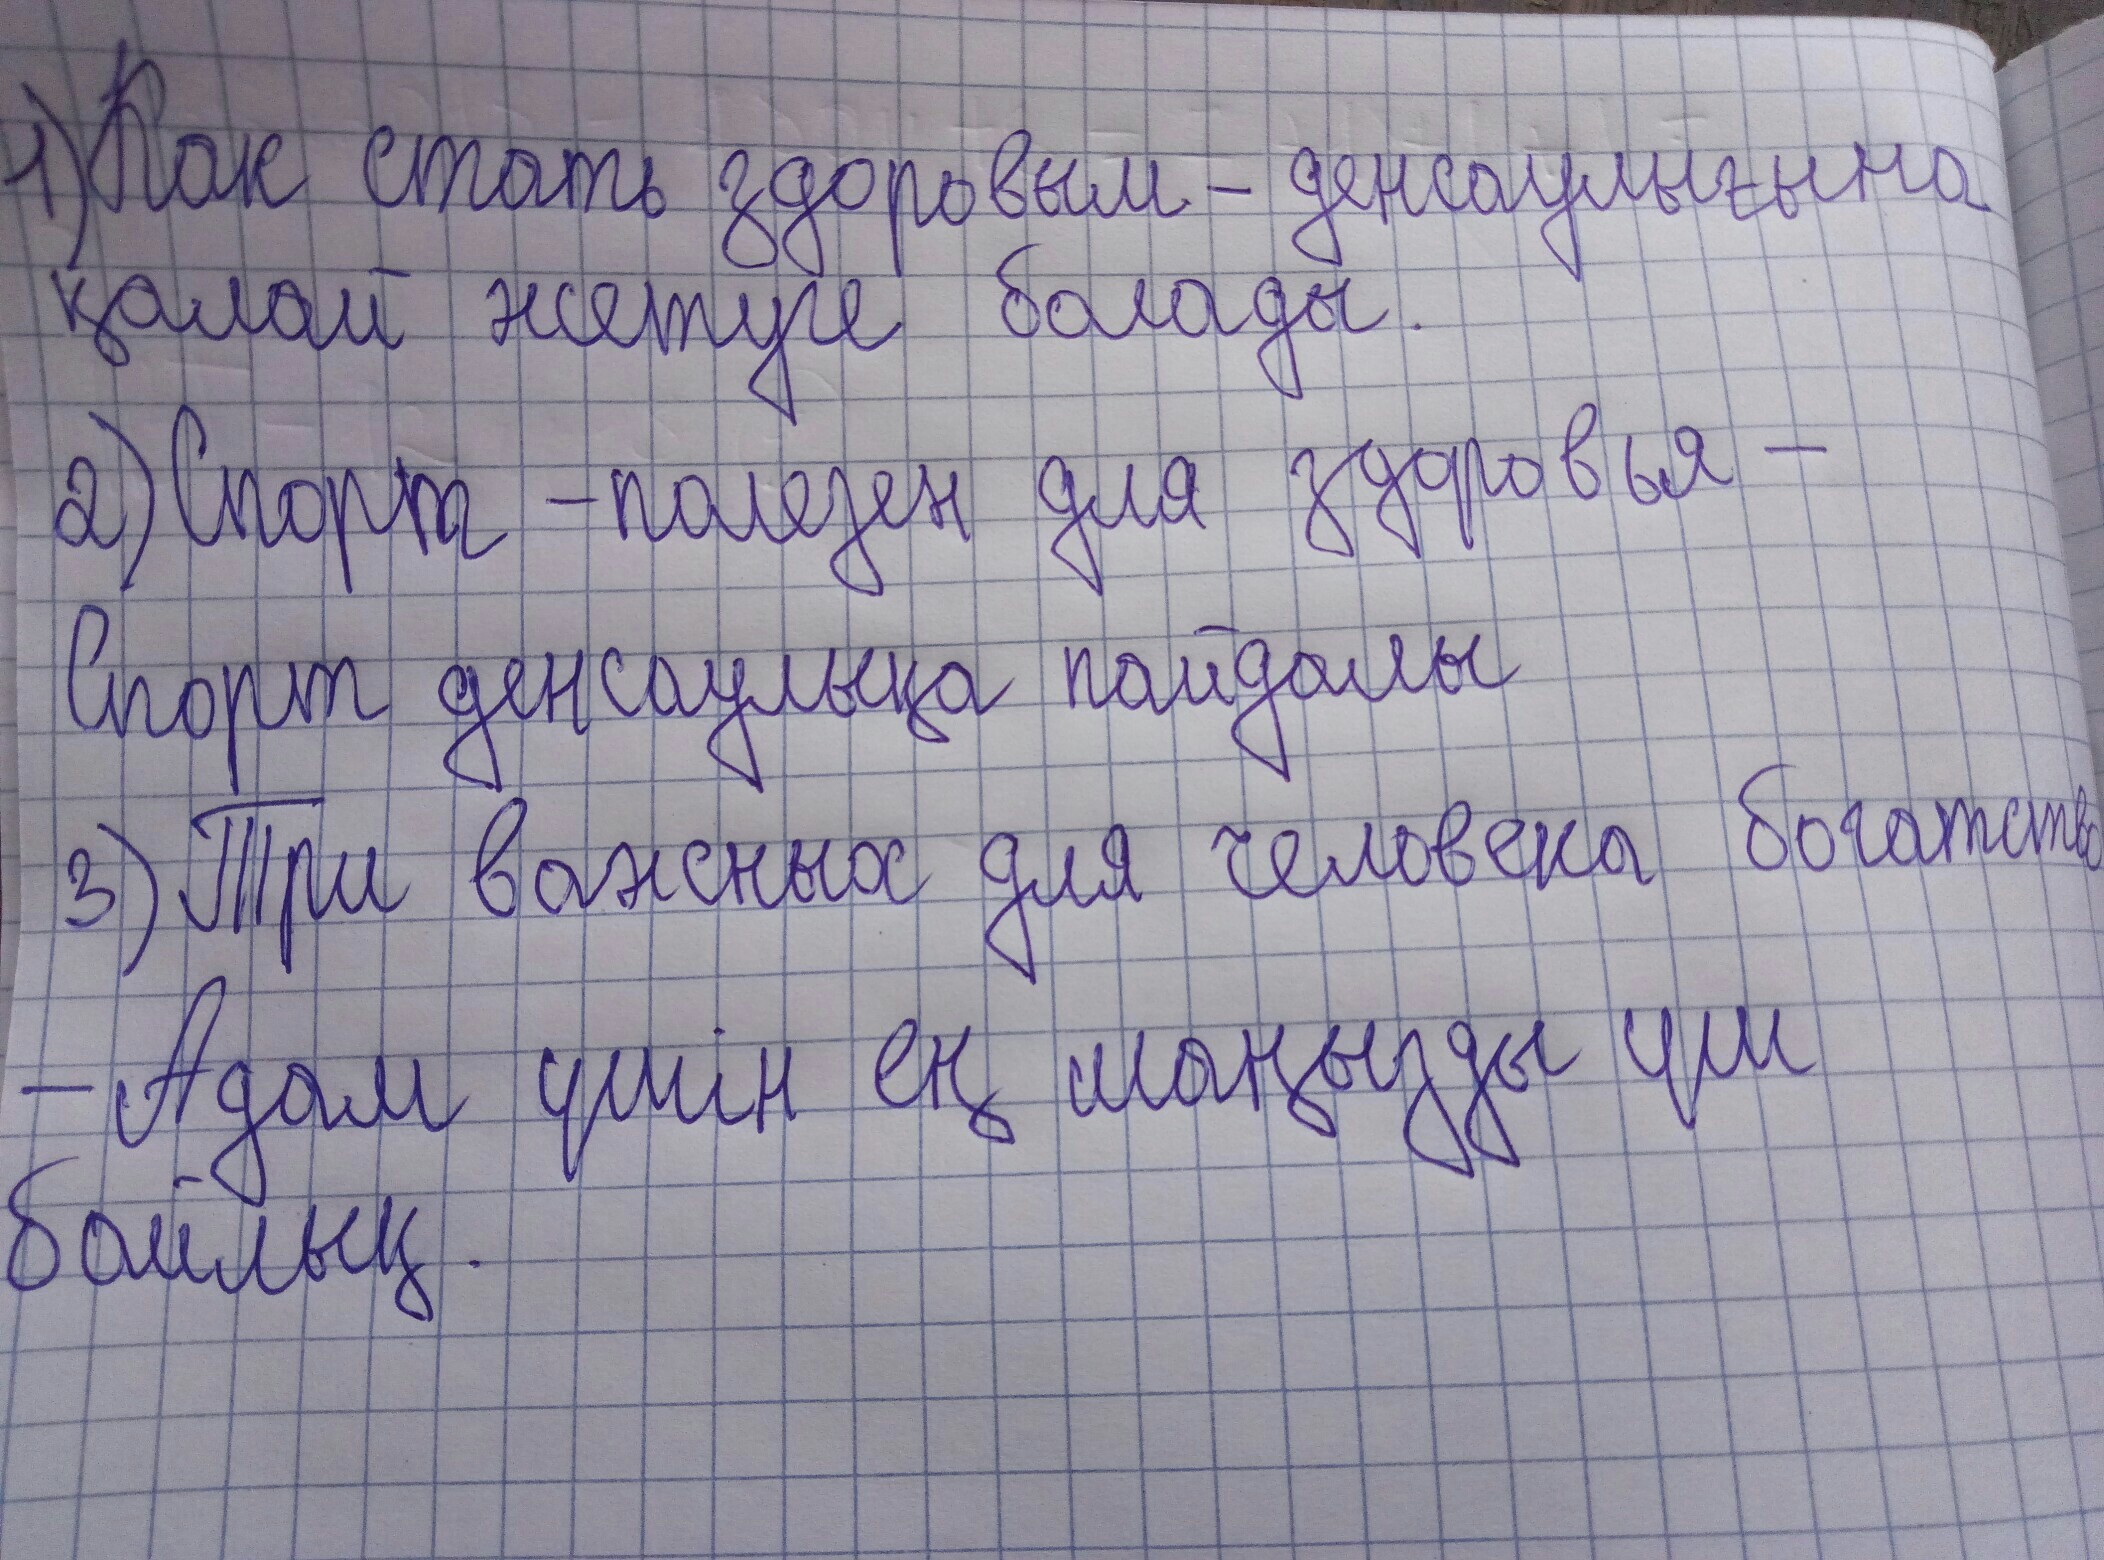 1) Как стать здоровым - денсаулығына
қалай жетуге болады.
2) Спорт - полезен для здоровья -
Спорт денсаулықа пайдалы
3) Три важных для человека богатство
- Адам үшін ең маңызды үш
байлық.